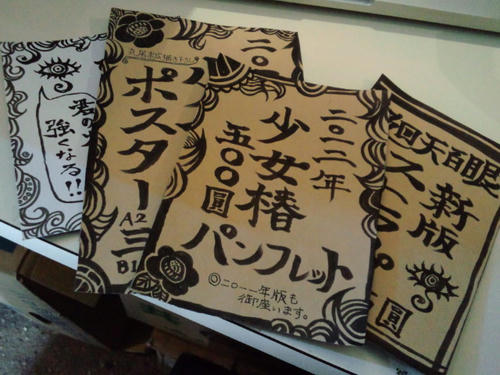 君
強くなる!!
二〇
丸尾末広描き下ろし
ポスター
A2
B1
三
二〇一二年
少女椿
五〇〇圓
パンフレット
◎二〇一一年版も
御座います。
廻天百眼
新版
ス
圓